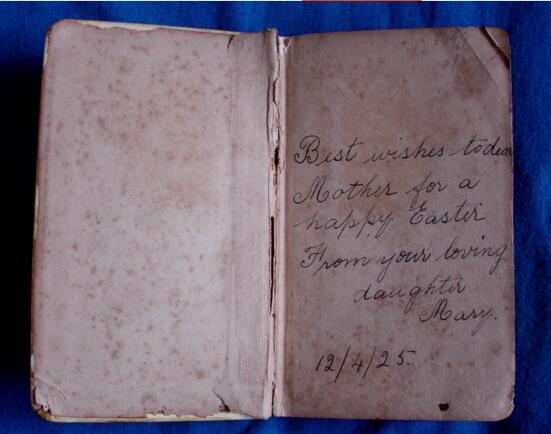 Best wishes to dear
Mother for a
happy Easter
From your loving
daughter
Mary.
12/4/25.